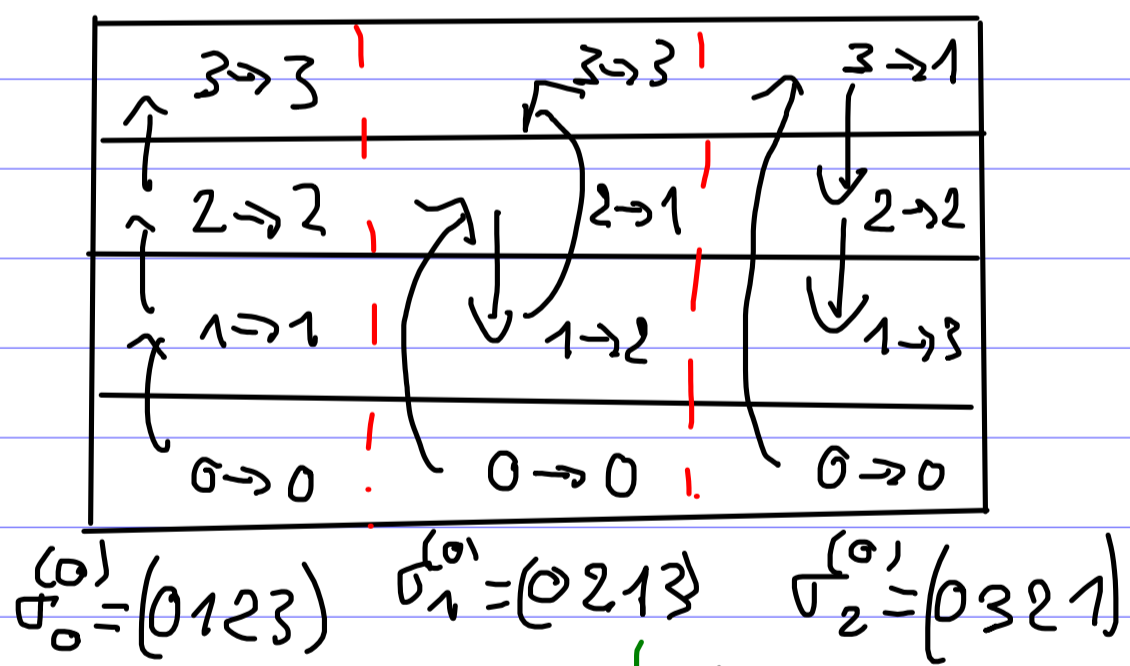 3→3 3→3 3→1
2→2 2→1 2→2
1→1 1→2 1→3
0→0 0→0 0→0
σ₀⁽⁰⁾=(0123) σ₁⁽⁰⁾=(0213) σ₂⁽⁰⁾=(0321)